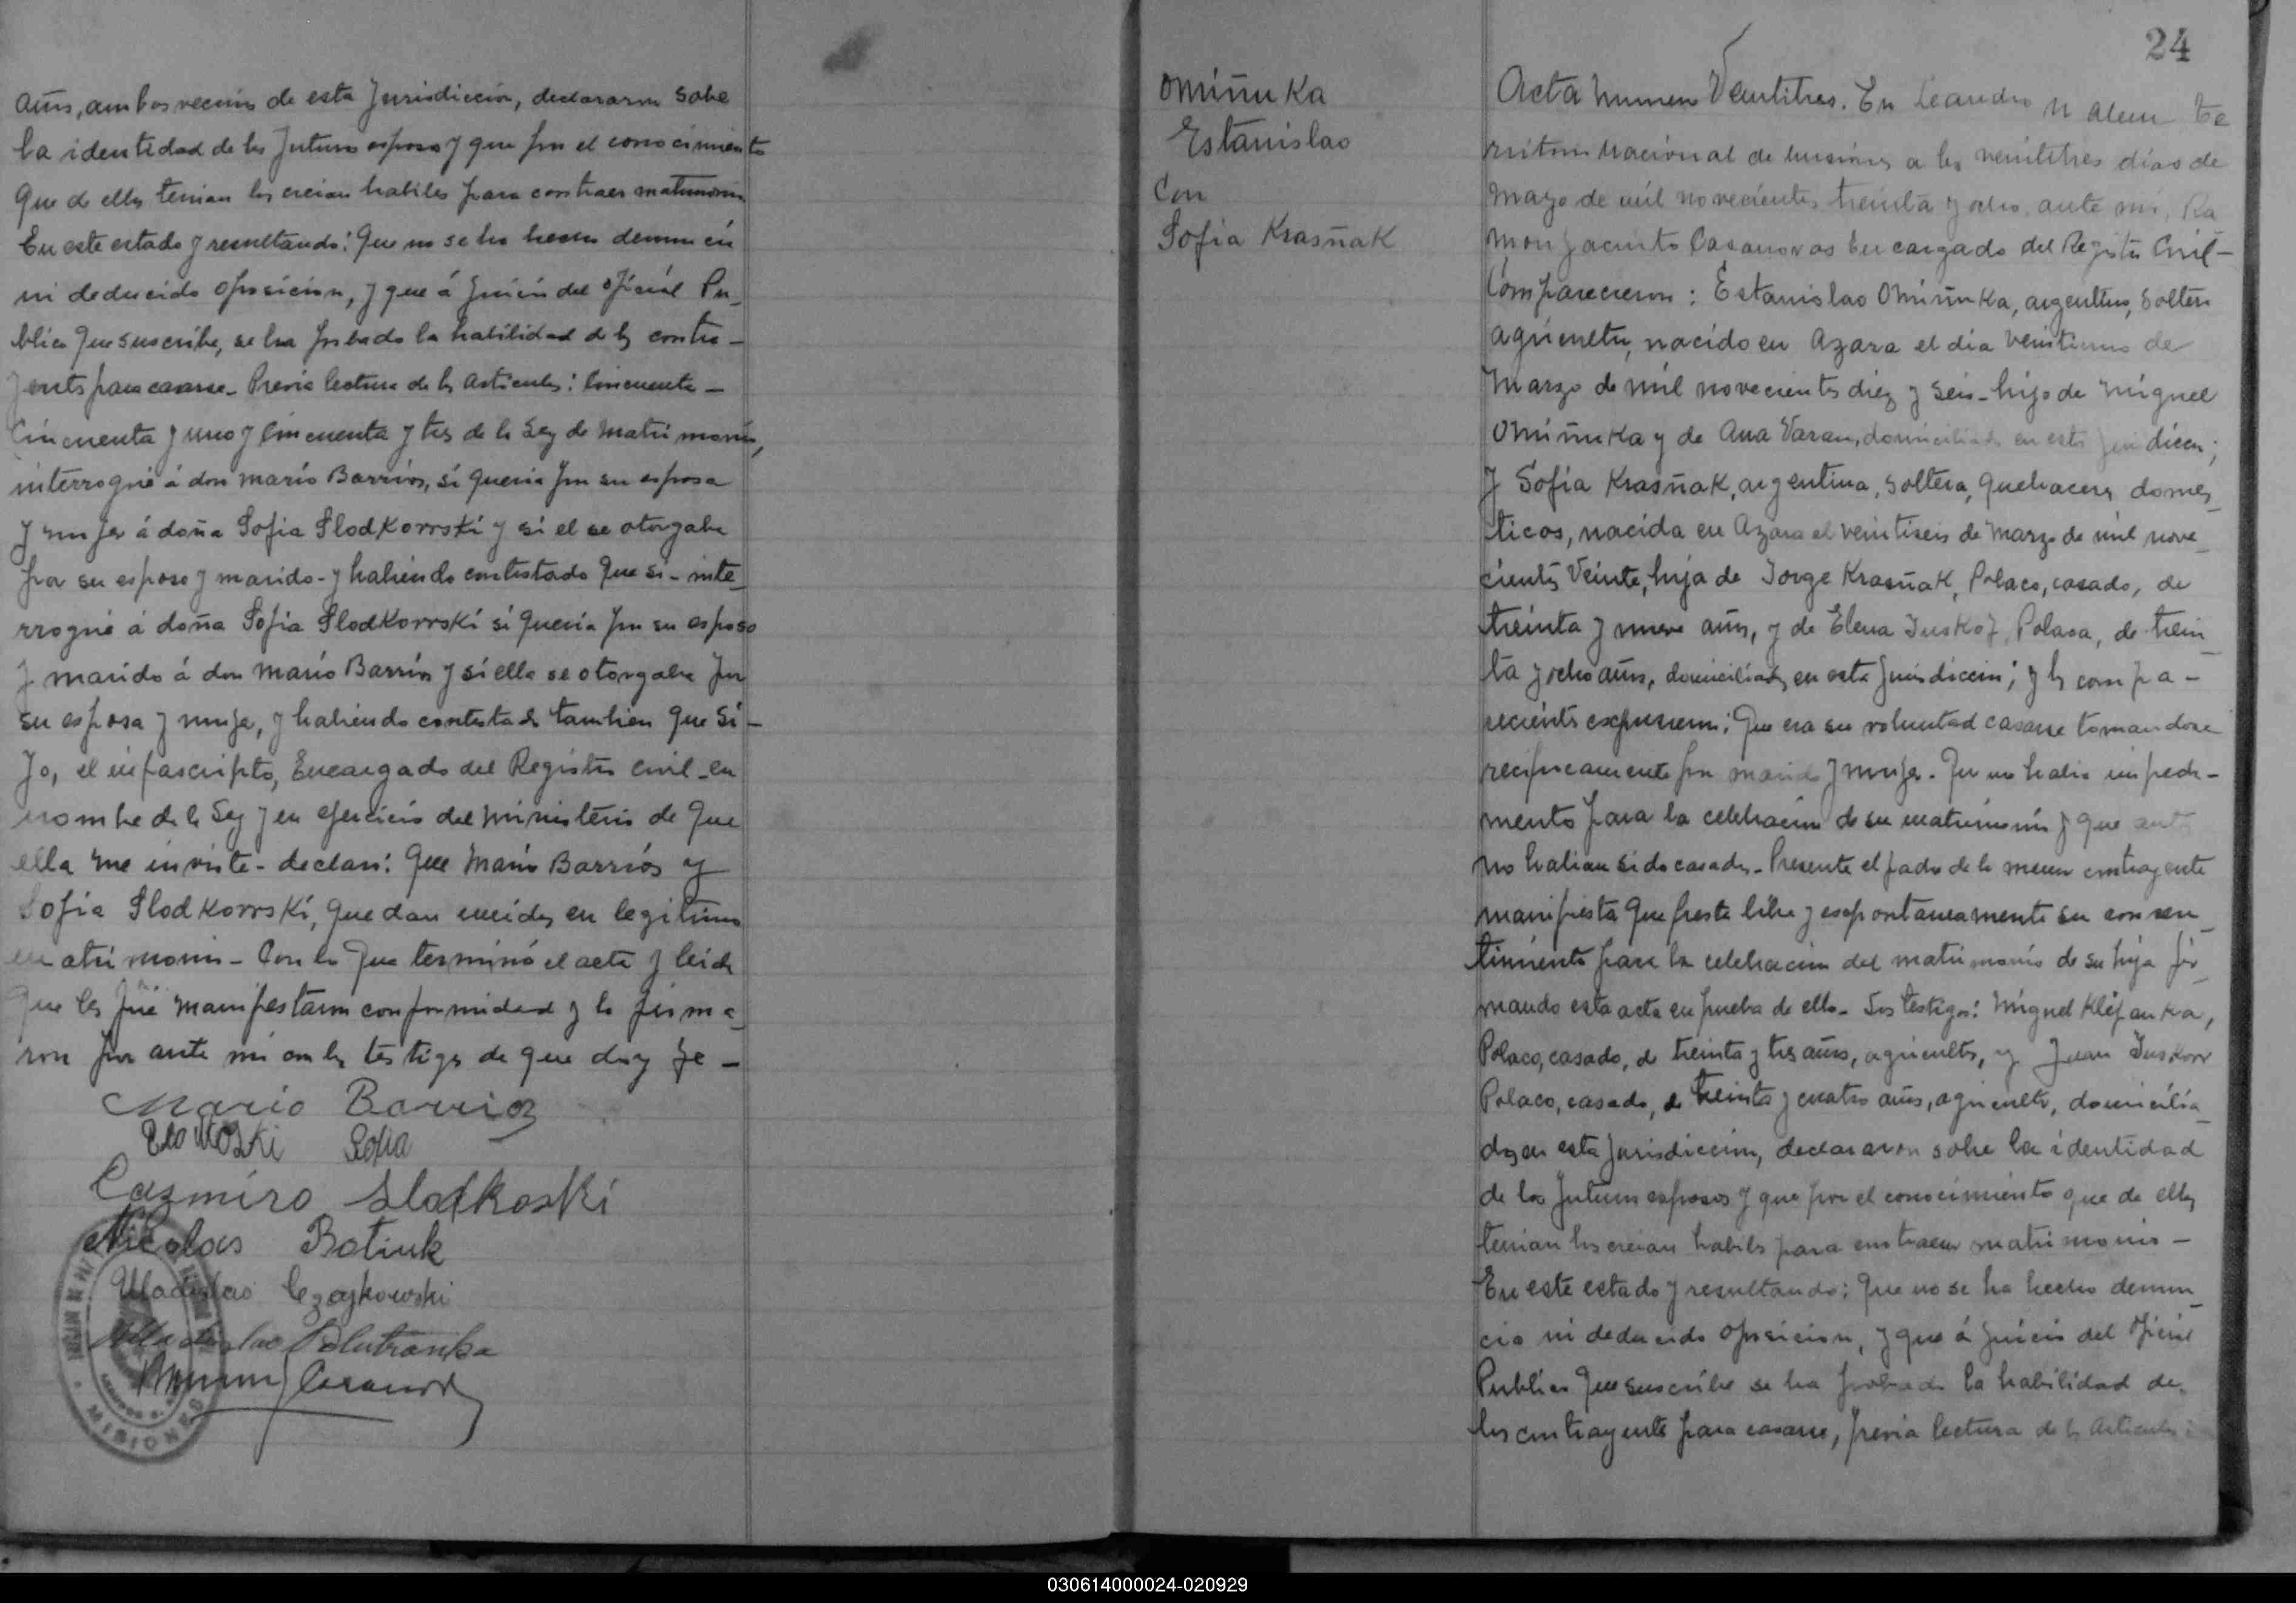 años, ambos vecinos de esta Jurisdiccion, declararon sobre
la identidad de los futuros esposos y que por el conocimiento
que de ellos tenian los creian habiles para contraer matrimonio
En este estado y resultando: Que no se ha hecho denuncia
ni deducido oposicion, y que á juicio del oficial Pu_
blico que suscribe, se ha probado la habilidad de los contra-
yentes para casarse_ Previa lectura de los articulos: Cincuenta_
Cincuenta y uno y Cincuenta y tres de la Ley de Matrimonio,
interrogué á don Mario Barrios, si queria por su esposa
y mujer á doña Sofia Slodkorrski y si el se otorgaba
por su esposo y marido- y habiendo contestado que si- inte_
rrogué á doña Sofia Slodkorrski si queria por su esposo
y marido á don Mario Barrios y si ella se otorgaba por
su esposa y mujer, y habiendo contestado tambien que si-
Yo, el infrascripto, Encargado del Registro civil_en
nombre de la Ley y en ejercicio del ministerio de que
ella me inviste- declaro: Que Mario Barriós y
Sofia Slodkorrski, quedan unidos en legitimo
matrimonio- Con lo que terminó el acta y leida
que les fué manifestaron conformidad y la firma_
ron por ante mi con los testigos de que doy fe-
Mario Barrios
Sofia
Cazmiro Slotkoski
Nicolas Botiuk
Uladislao Czajkowski
MISIONES
24
Omiñuka
Estanislao
Con
Sofia Krasñak
Acta numero Veintitres. En Leandro N Alem te
rritorio nacional de Misiones a los veintitres dias de
Mayo de mil novecientos treinta y ocho, ante mi, Ra
mon Jacinto Casanovas Encargado del Registro Civil-
Comparecieron: Estanislao Omiñuka, argentino, soltero
agricultor, nacido en Azara el dia veintiuno de
Marzo de mil novecientos diez y seis-hijo de Miguel
Omiñuka y de Ana Varan, domiciliado en esta jurisdiccion;
y Sofia Krasñak, argentina, soltera, quehaceres domes_
ticos, nacida en Azara el veintiseis de Marzo de mil nove_
cientos Veinte, hija de Jorge Krasñak, Polaco, casado, de
treinta y nueve años, y de Elena Juskof, Polaca, de trein_
ta y ocho años, domiciliados en esta Jurisdiccion; y los compa-
recientes expusieron: Que era su voluntad casarse tomandose
reciprocamente por marido y mujer. Que no habia impedi-
mento para la celebracion de su matrimonio y que antes
no habian sido casados_ Presente el padre de la menor contrayente
manifiesta que presta libre y espontaneamente su consen_
timiento para la celebracion del matrimonio de su hija fir_
mando esta acta en prueba de ello_ Los testigos: Miguel Klifanka,
Polaco, casado, de treinta y tres años, agricultor, y Juan Juskow
Polaco, casado, de treinta y cuatro años, agricultor, domicilia_
dos en esta Jurisdiccion, declararon sobre la identidad
de los futuros esposos y que por el conocimiento que de ellos
tenian los creian habiles para contraer matrimonio-
En este estado y resultando: Que no se ha hecho denun_
cia ni deducido oposicion, y que á juicio del oficial
Publico que suscribe se ha probado la habilidad de
los contrayentes para casarse, previa lectura de los articulos:
030614000024-020929